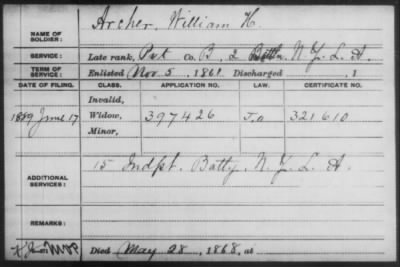 Archer, William H.
NAME OF SOLDIER:
SERVICE: Late rank, Pvt Co. B, 2 Battln. N.Y. L. A.
TERM OF SERVICE: Enlisted Nov. 5, 1861 Discharged , 1
DATE OF FILING. CLASS. APPLICATION NO. LAW. CERTIFICATE NO.
Invalid,
1889 June 17 Widow, 397426 321610
Minor,
15 Indpt. Batty. N. Y. L. A.
ADDITIONAL SERVICES:
REMARKS:
Died May 28, 1868, at